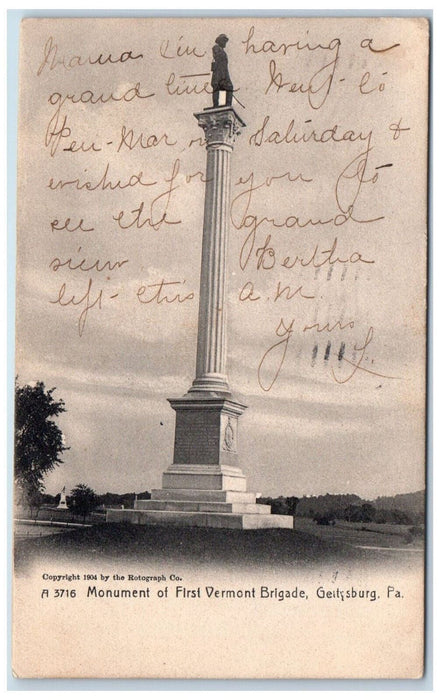 Mama I'm having a
grand time. Went to
Pen-Mar on Saturday &
wished for you to
see the grand
view Bertha
left this a.m.
Yours
L.
Copyright 1904 by the Rotograph Co.
A 3716 Monument of First Vermont Brigade, Gettysburg, Pa.